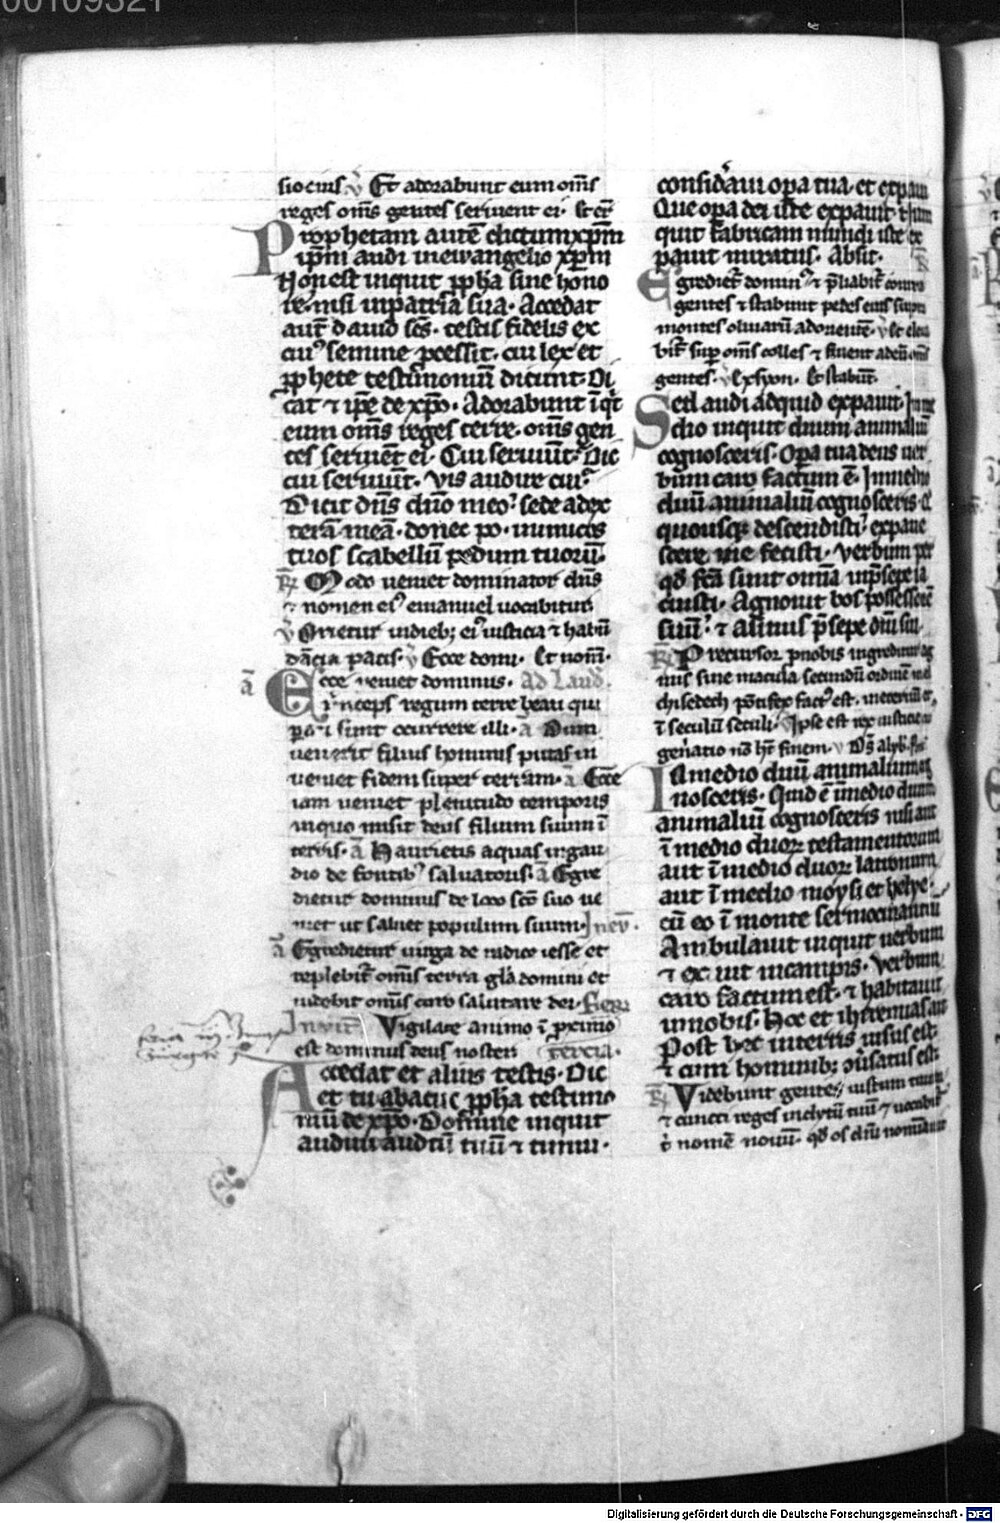 00109321
sio eius v Et adorabunt eum om̄s
reges om̄s gentes seruient ei. et er̄
Prophetam autē dictum xp̄m
ip̄m audi in ewangelio xp̄m
Non est inquit ꝓpha sine hono
re. nisi in patria sua. Accedat
aut̄ dauid scs̄. testis fidelis ex
cuiꝰ semine ꝓcessit. cui lex et
ꝓphete testimoniū dicunt. Di
cat ⁊ ip̄e de xp̄o. Adorabunt īq̇t
eum om̄s reges terre. om̄s gen
tes seruiēt ei. Cui seruiūt? Dic
cui seruiūt. vis audire cui?
Dicit dn̄s dn̄o meo. sede a dex
teris meis. donec po. inimicos
tuos scabellū pedum tuorū.
R̄ Modo ueniet dominator dn̄s
⁊ nomen eiꝰ emanuel uocabitur
v Orietur in dieb; eiꝰ iusticia ⁊ habū
dācia pacis. v Ecce domi. Et nom̄.
ā Ecce ueniet dominus. Ad Laud̄.
princeps regum terre beati qui
parati sunt occurrere illi. ā Dum
uenerit filius hominis putas in
ueniet fidem super terram. ā Ecce
iam ueniet plenitudo temporis
in quo misit deus filium suum ī
terris. ā Haurietis aquas in gau
dio de fontib; saluatoris. ā Egre
dietur dominus de loco scō suo ue
niet ut saluet populum suum. In eu̅.
ā Egredietur uirga de radice iesse et
replebit̄ omīs terra glā domini et
uidebit omīs caro salutare dei. Feria
Inuit̄ Vigilate animo ī proximo
est dominus deus noster tercia.
Accedat et alius testis. Dic
et tu abacuc ꝓpha testimo
niū de xp̄o. Domine inquit
audiui auditū tuū ⁊ timui.
consid̾aui oꝑa tua. et expaui
Que oꝑa dei iste expauit. Num
quit fabricam mundi iste ex
pauit miratus. Absit.
Egrediet̄ dominꝰ ⁊ p̄liabit̄ contra
gentes ⁊ stabunt pedes eius supra
montes oliuarū ad orientē. v Et eleua
bit̄ sup̄ om̄s colles ⁊ fluent ad eū om̄s
gentes. v Ex syon. Et stabūt.
Sed audi ad quid expauit. In me
dio inquit duum animaliū
cognosceris. Oꝑa tua deus uer
bum caro factum ē. In medio
duū animaliū cognosceris. ꝗ
quousqꝫ descendisti? expaue
scere me fecisti. verbum per
qd̄ fc̄a sunt omīa in p̄sepe ia
cuisti. Agnouit bos possessorē
suū. ⁊ asinus p̄sepe dn̄i sui.
R̄ Precursor ꝓ nobis ingreditur ag
nus sine macula secundū ordinē mel
chisedech pōtifex factꝰ est. in eternū ⁊
ī seculū seculi. v Ipse est rex iusticie cuiꝰ
gen̄atio nō h̄t finem. v
In medio duū animaliū cog
nosceris. Quid ē ī medio duum
animaliū cognosceris nisi aut
ī medio duoꝝ testamentorum
aut ī medio duoꝝ latronum
aut ī medio moysi et helye.
cū eo ī monte sermocinantiū
Ambulauit inquit uerbum
⁊ exiuit in campis. verbum
caro factum est. ⁊ habitauit
in nobis. Hoc et iheremias ait
Post hec in terris uisus est.
⁊ cum hominib; ꝯu̾satus est.
R̄ Videbunt gentes iustum tuum
⁊ cuncti reges inclytū tuū ⁊ uocabit̄
t̄ nomē nouū. qd̄ os dn̄i nominauit
Digitalisierung gefördert durch die Deutsche Forschungsgemeinschaft - DFG